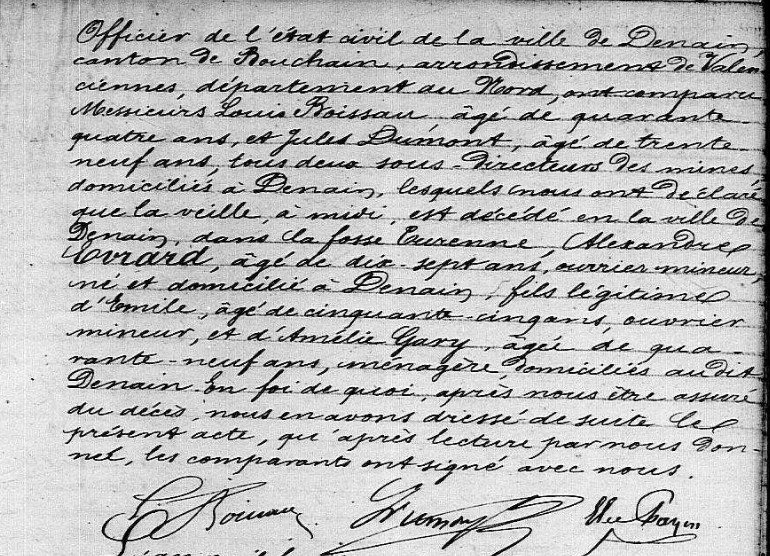 Officier de l'état civil de la ville de Denain,
canton de Bouchain, arrondissement de Valen
ciennes, département du Nord, ont comparu
Messieurs Louis Boissau âgé de quarante
quatre ans, et Jules Dumont, âgé de trente
neuf ans, tous deux sous-directeurs des mines,
domiciliés à Denain, lesquels nous ont déclaré
que la veille, à midi, est décédé en la ville de
Denain, dans la fosse Turenne, Alexandre
Evrard, âgé de dix-sept ans, ouvrier mineur,
né et domicilié à Denain, fils légitime
d'Emile, âgé de cinquante-cinq ans, ouvrier
mineur, et d'Amélie Gary, âgée de qua-
rante-neuf ans, ménagère, domiciliés audit
Denain. En foi de quoi, après nous être assuré
du décès, nous en avons dressé de suite le
présent acte, qu'après lecture par nous don-
née, les comparants ont signé avec nous.
Dumont